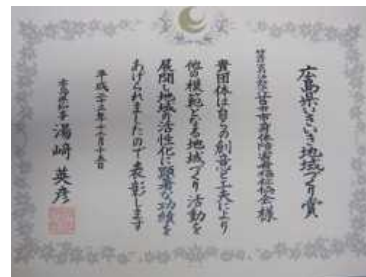 広島県いきいき地域づくり賞
廿日市市身体障害者福祉協会様
貴団体は自らの創意と工夫により
他の模範となる地域づくり活動を
展開し地域の活性化に顕著な功績を
あげられましたので表彰します
平成二十三年十一月十五日
広島県知事 湯﨑 英彦